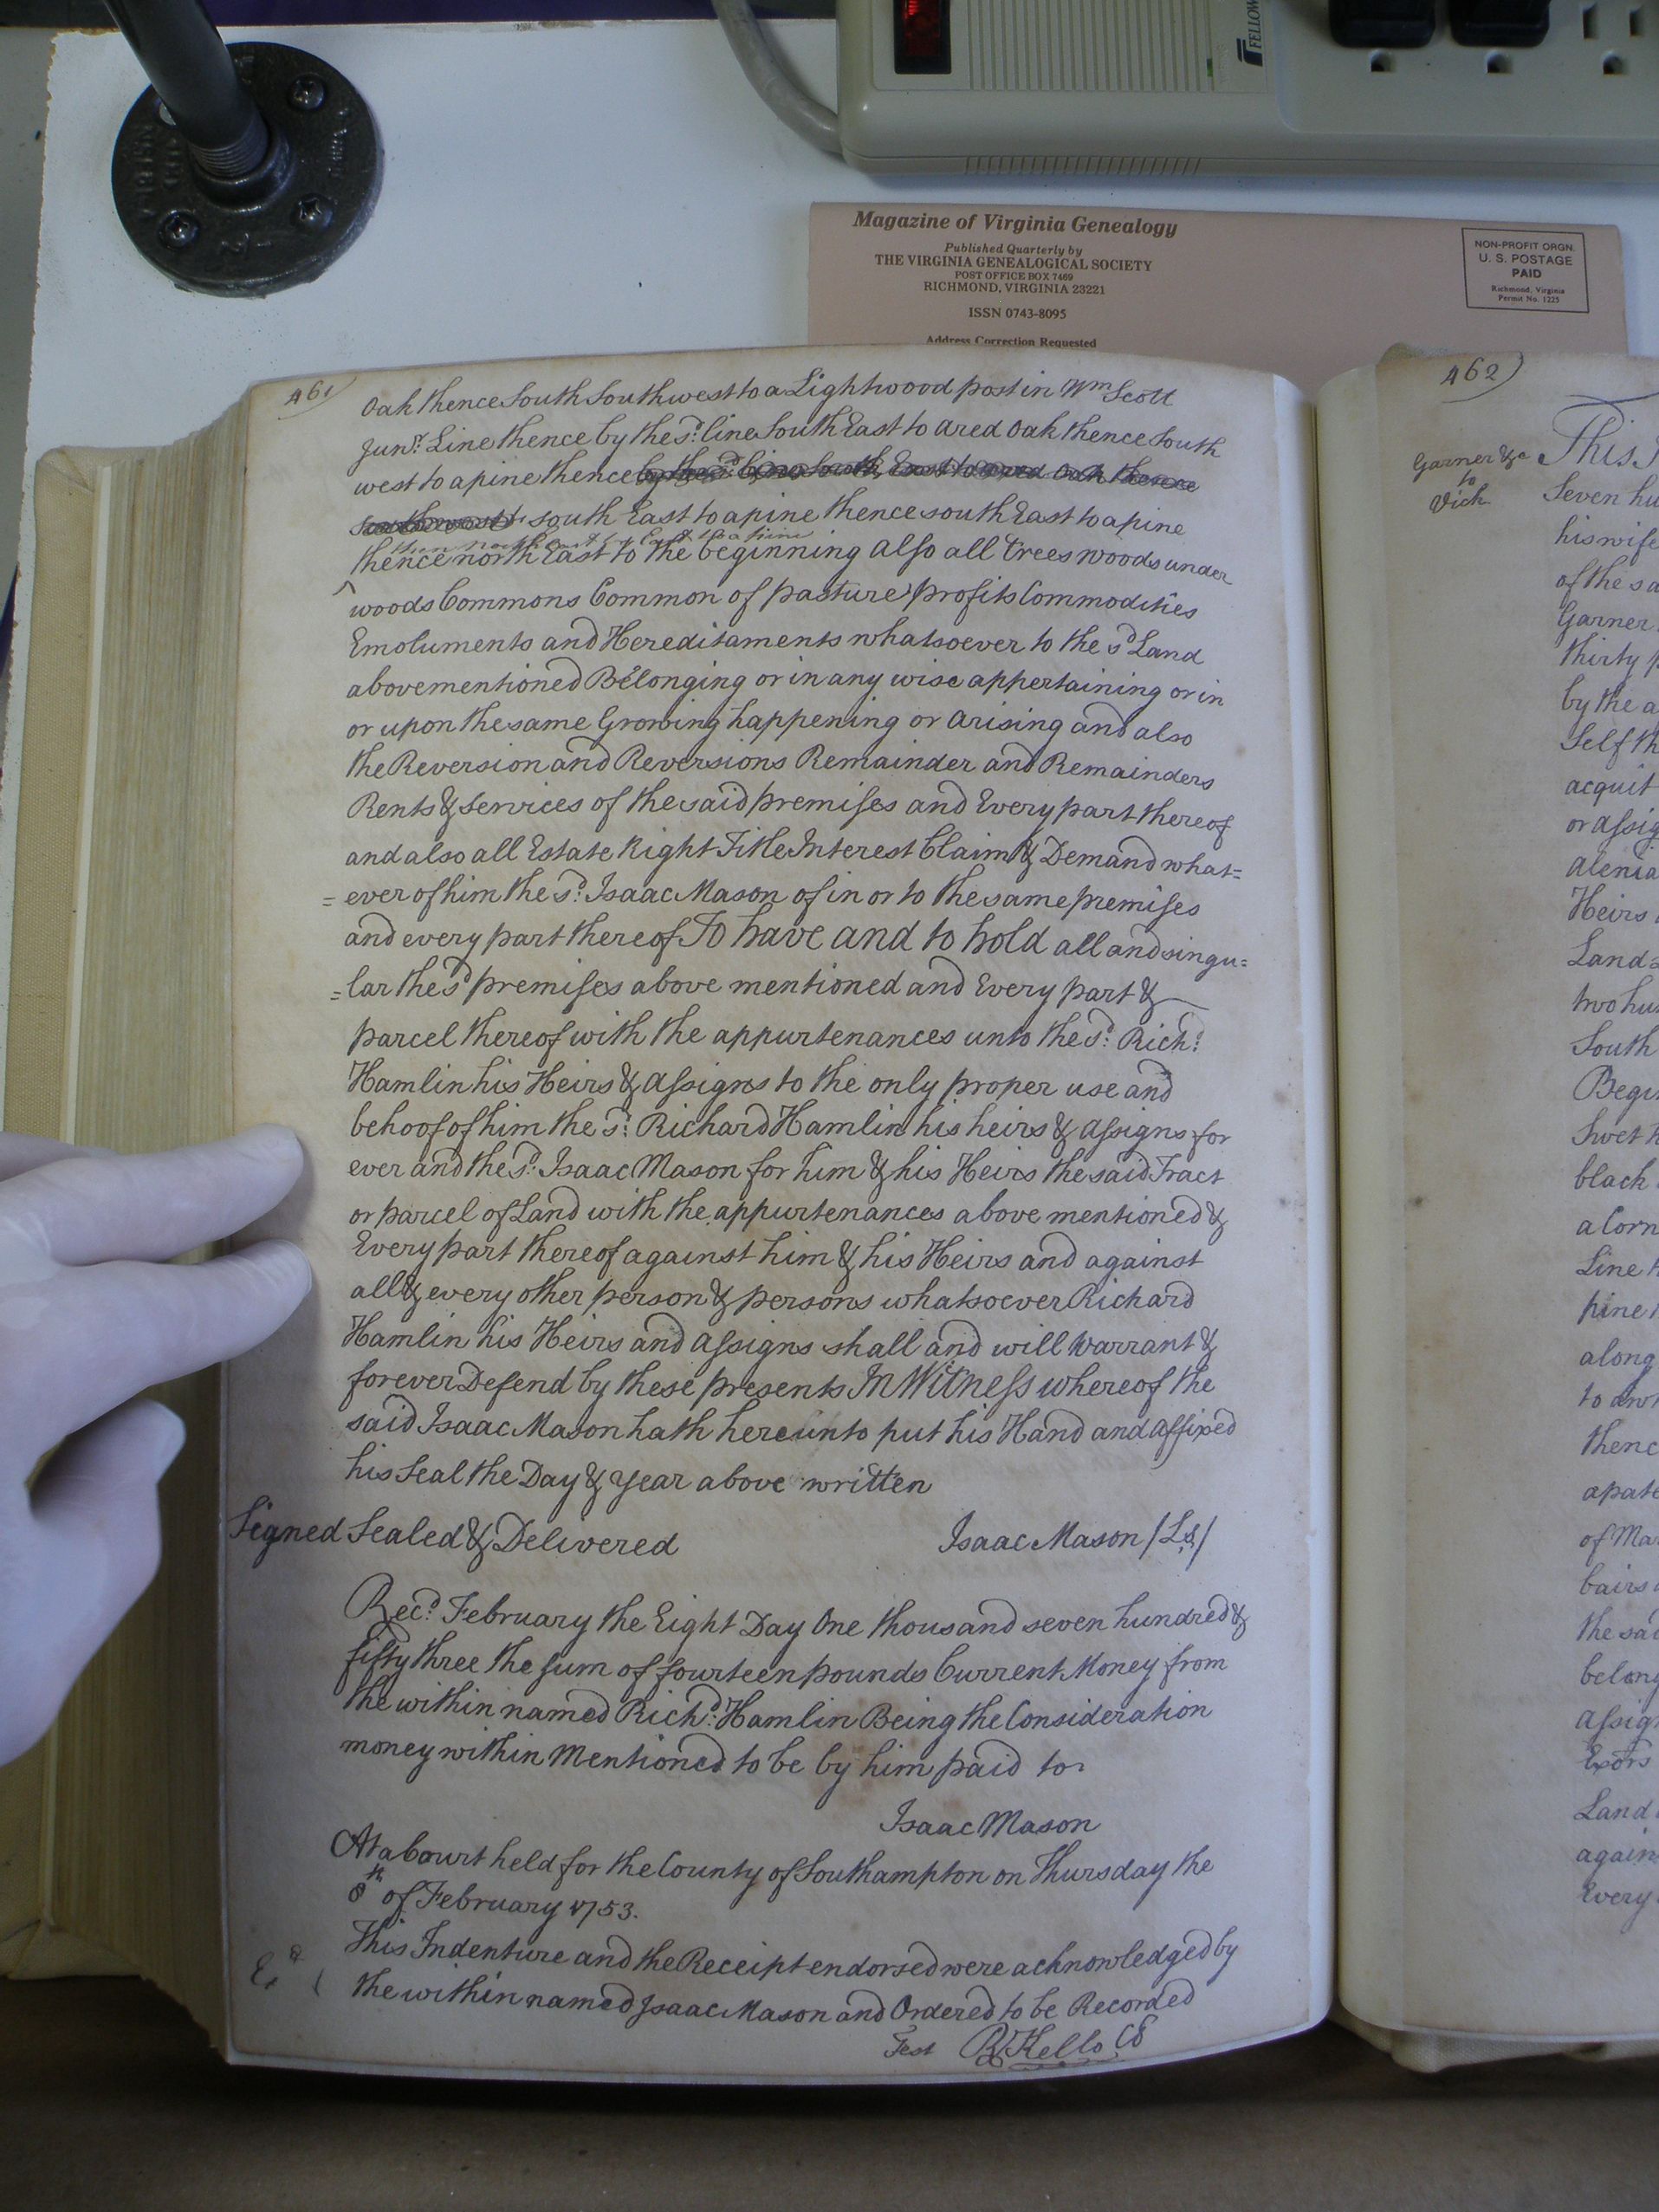 FELLOW
Magazine of Virginia Genealogy
Published Quarterly by
THE VIRGINIA GENEALOGICAL SOCIETY
POST OFFICE BOX 7469
RICHMOND, VIRGINIA 23221
ISSN 0743-8095
Address Correction Requested
NON-PROFIT ORGN.
U. S. POSTAGE
PAID
Richmond, Virginia
Permit No. 1225
461)
Oak thence South Southwest to a Lightwood post in Wm Scott
Junr. Line thence by the sd. line South East to a red Oak thence South
west to a pine thence by the sd. line South East to a red Oak thence
Southwest to south East to a pine thence south East to a pine
thence north East to the beginning also all trees woods under
woods Commons Common of pasture profits Commodities
Emoluments and Hereditaments whatsoever to the sd Land
abovementioned Belonging or in any wise appertaining or in
or upon the same Growing happening or arising and also
the Reversion and Reversions Remainder and Remainders
Rents & Services of the said premises and Every part thereof
and also all Estate Right Title Interest Claim & Demand what=
=ever of him the sd. Isaac Mason of in or to the same premises
and every part thereof To have and to hold all and singu=
=lar the sd premises above mentioned and Every part &
parcel thereof with the appurtenances unto the sd. Richd.
Hamlin his Heirs & assigns to the only proper use and
behoof of him the sd. Richard Hamlin his heirs & assigns for
ever and the sd. Isaac Mason for him & his Heirs the said Tract
or parcel of Land with the appurtenances above mentioned &
Every part thereof against him & his Heirs and against
all & every other person & persons whatsoever Richard
Hamlin his Heirs and assigns shall and will warrant &
forever Defend by these presents In Witness whereof the
said Isaac Mason hath hereunto put his Hand and affixed
his Seal the Day & Year above written
Signed Sealed & Delivered
Isaac Mason (LS)
Recd. February the Eight Day One thousand seven hundred &
fifty three the sum of fourteen pounds Current Money from
the within named Richd. Hamlin Being the Consideration
money within Mentioned to be by him paid to
Isaac Mason
At a Court held for the County of Southampton on Thursday the
8th of February 1753.
This Indenture and the Receipt endorsed were acknowledged by
the within named Isaac Mason and Ordered to be Recorded
Exd
Test R Kello CC
462)
Garner &c
to
Vick
This
Seven hu
his wife
of the sa
Garner
thirty p
by the a
Self th
acquit
or assig
aliena
Heirs
Land
two hu
South
Begi
Swet
black
a Corn
Line
pine
along
to a w
thenc
a pate
of Mar
bairs
the sad
belong
assign
Exors
Land
again
Every